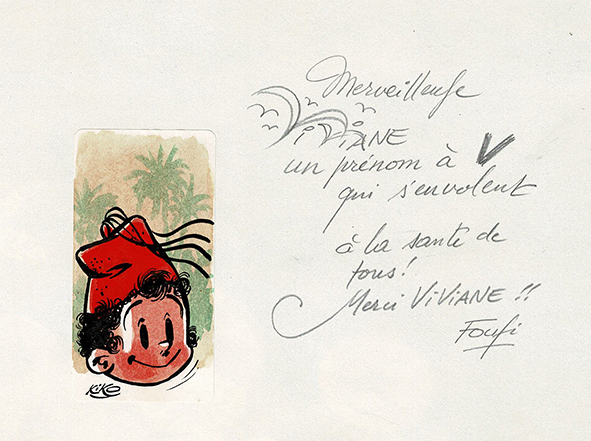 Merveilleuse
ViViANE
un prénom à V
qui s'envolent
à la santé de
tous!
Merci ViViANE !!
Foufi
KiKO